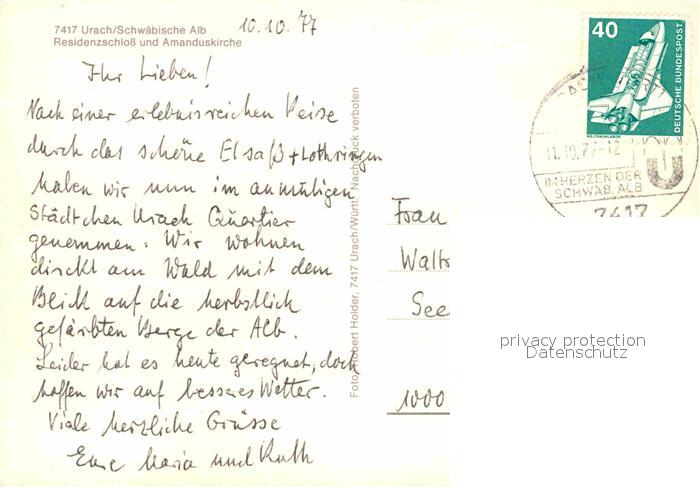 7417 Urach/Schwäbische Alb
Residenzschloß und Amanduskirche
10.10.77
Ihr Lieben!
Nach einer erlebnisreichen Reise
durch das schöne Elsaß + Lothringen
haben wir nun im anmutigen
Städtchen Urach Quartier
genommen. Wir wohnen
direkt am Wald mit dem
Blick auf die herbstlich
gefärbten Berge der Alb.
Leider hat es heute geregnet, doch
hoffen wir auf besseres Wetter.
Viele herzliche Grüsse
Eure Maria und Ruth
Foto: Robert Holder, 7417 Urach/Württ. Nachdruck verboten
40
DEUTSCHE BUNDESPOST
WELTRAUMLABOR
11.10.77-12
IM HERZEN DER
SCHWÄB. ALB
7417
Frau
Waltr
See
1000
privacy protection
Datenschutz